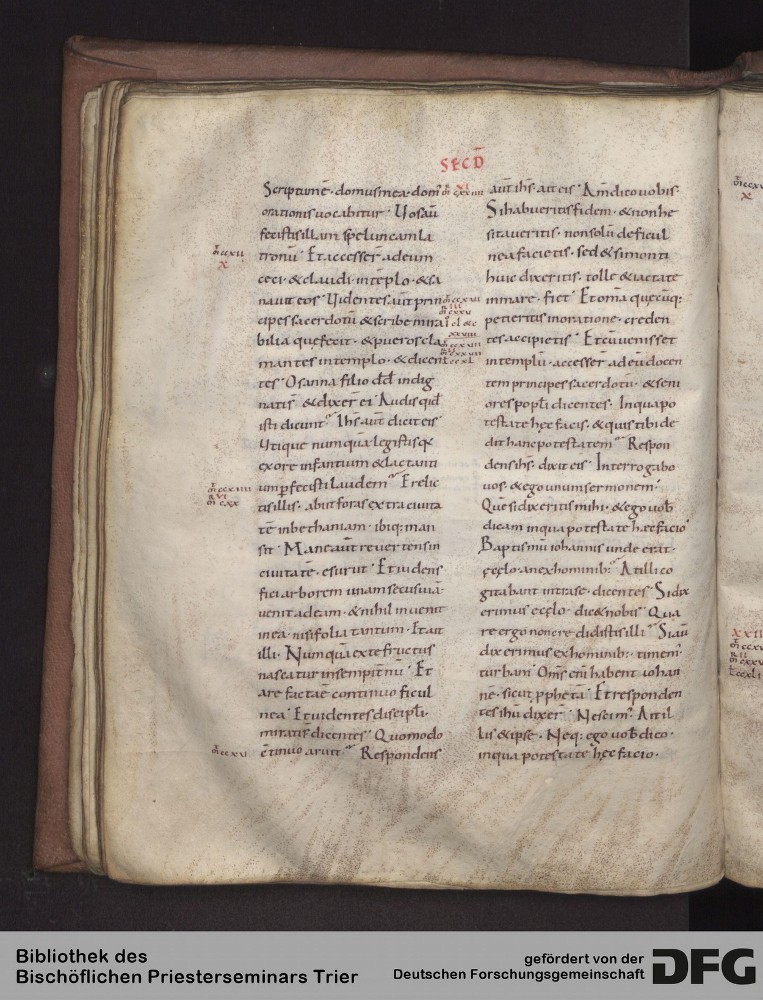 SECD̄
Scriptum ē · domus mea · dom̄
orationis uocabitur · Uos aū
fecistis illam speluncam la
tronū · Et accesser̄ ad eum
ceci · & claudi · in tēplo · & sa
nauit eos · Uidentes aūt prin
cipes sacerdotū & scribe mira
bilia que fecit · & pueros cla
mantes in templo · & dicen
tes · Osanna filio dd̄ indig
nati s̄ · & dixer̄ ei · Audis qid
isti dicunt · Ihs̄ aūt dicit eis
Utique numquā legistis q̄
ex ore infantium & lactanti
um pfecisti laudem · Et relic
tis illis · abiit foras extra ciuita
tē in bethaniam · ibiq: man
sit · Mane aūt reuertens in
ciuitatē · esurut · Et uidens
fici arborem unam secus uiā ·
uenit ad eam · & nihil inuenit
in ea · nisi folia tantum · Et ait
illi · Numquā ex te fructus
nascatur in sempit̄nū · Et
arefacta ē continuo ficul
nea · Et uidentes discipl̄i ·
mirati s̄ dicentes · Quomodo
c̄tinuo aruit · Respondens
aūt ihs̄ · ait eis · Am̄ dico uobis ·
Si habueritis fidem · & non he
sitaueritis · non solū de ficul
nea facietis · sed & si monti
huic dixeritis · tolle & iactate
in mare · fiet · Et om̄a quecūq:
petieritis in oratione · creden
tes accipietis · Et cū uenisset
in templū · accesser̄ ad eū docen
tem principes sacerdotū · & seni
ores popl̄i dicentes · In qua po
testate hec facis · & quis tibi de
dit hanc potestatem · Respon
dens ihs̄ · dixit eis · Interrogabo
uos · & ego unum sermonem ·
Quē si dixeritis mihi · & ego uob̄
dicam in qua potestate hæc facio
Baptismū iohannis unde erat ·
e celo · an ex hominib: · At illi co
gitabant intra se · dicentes · Si dix
erimus e celo · dic& nobis · Qua
re ergo non credidistis illi · Si aū
dixerimus ex hominib: · timem̄
turbam · Om̄s eni habent iohan
nē · sicut ppheta · Et responden
tes ihū dixer̄ · Nescim᾿ · At il
lis & ipse · Neq: ego uob̄ dico ·
in qua potestate hec facio ·
Bibliothek des
Bischöflichen Priesterseminars Trier
gefördert von der
Deutschen Forschungsgemeinschaft
DFG